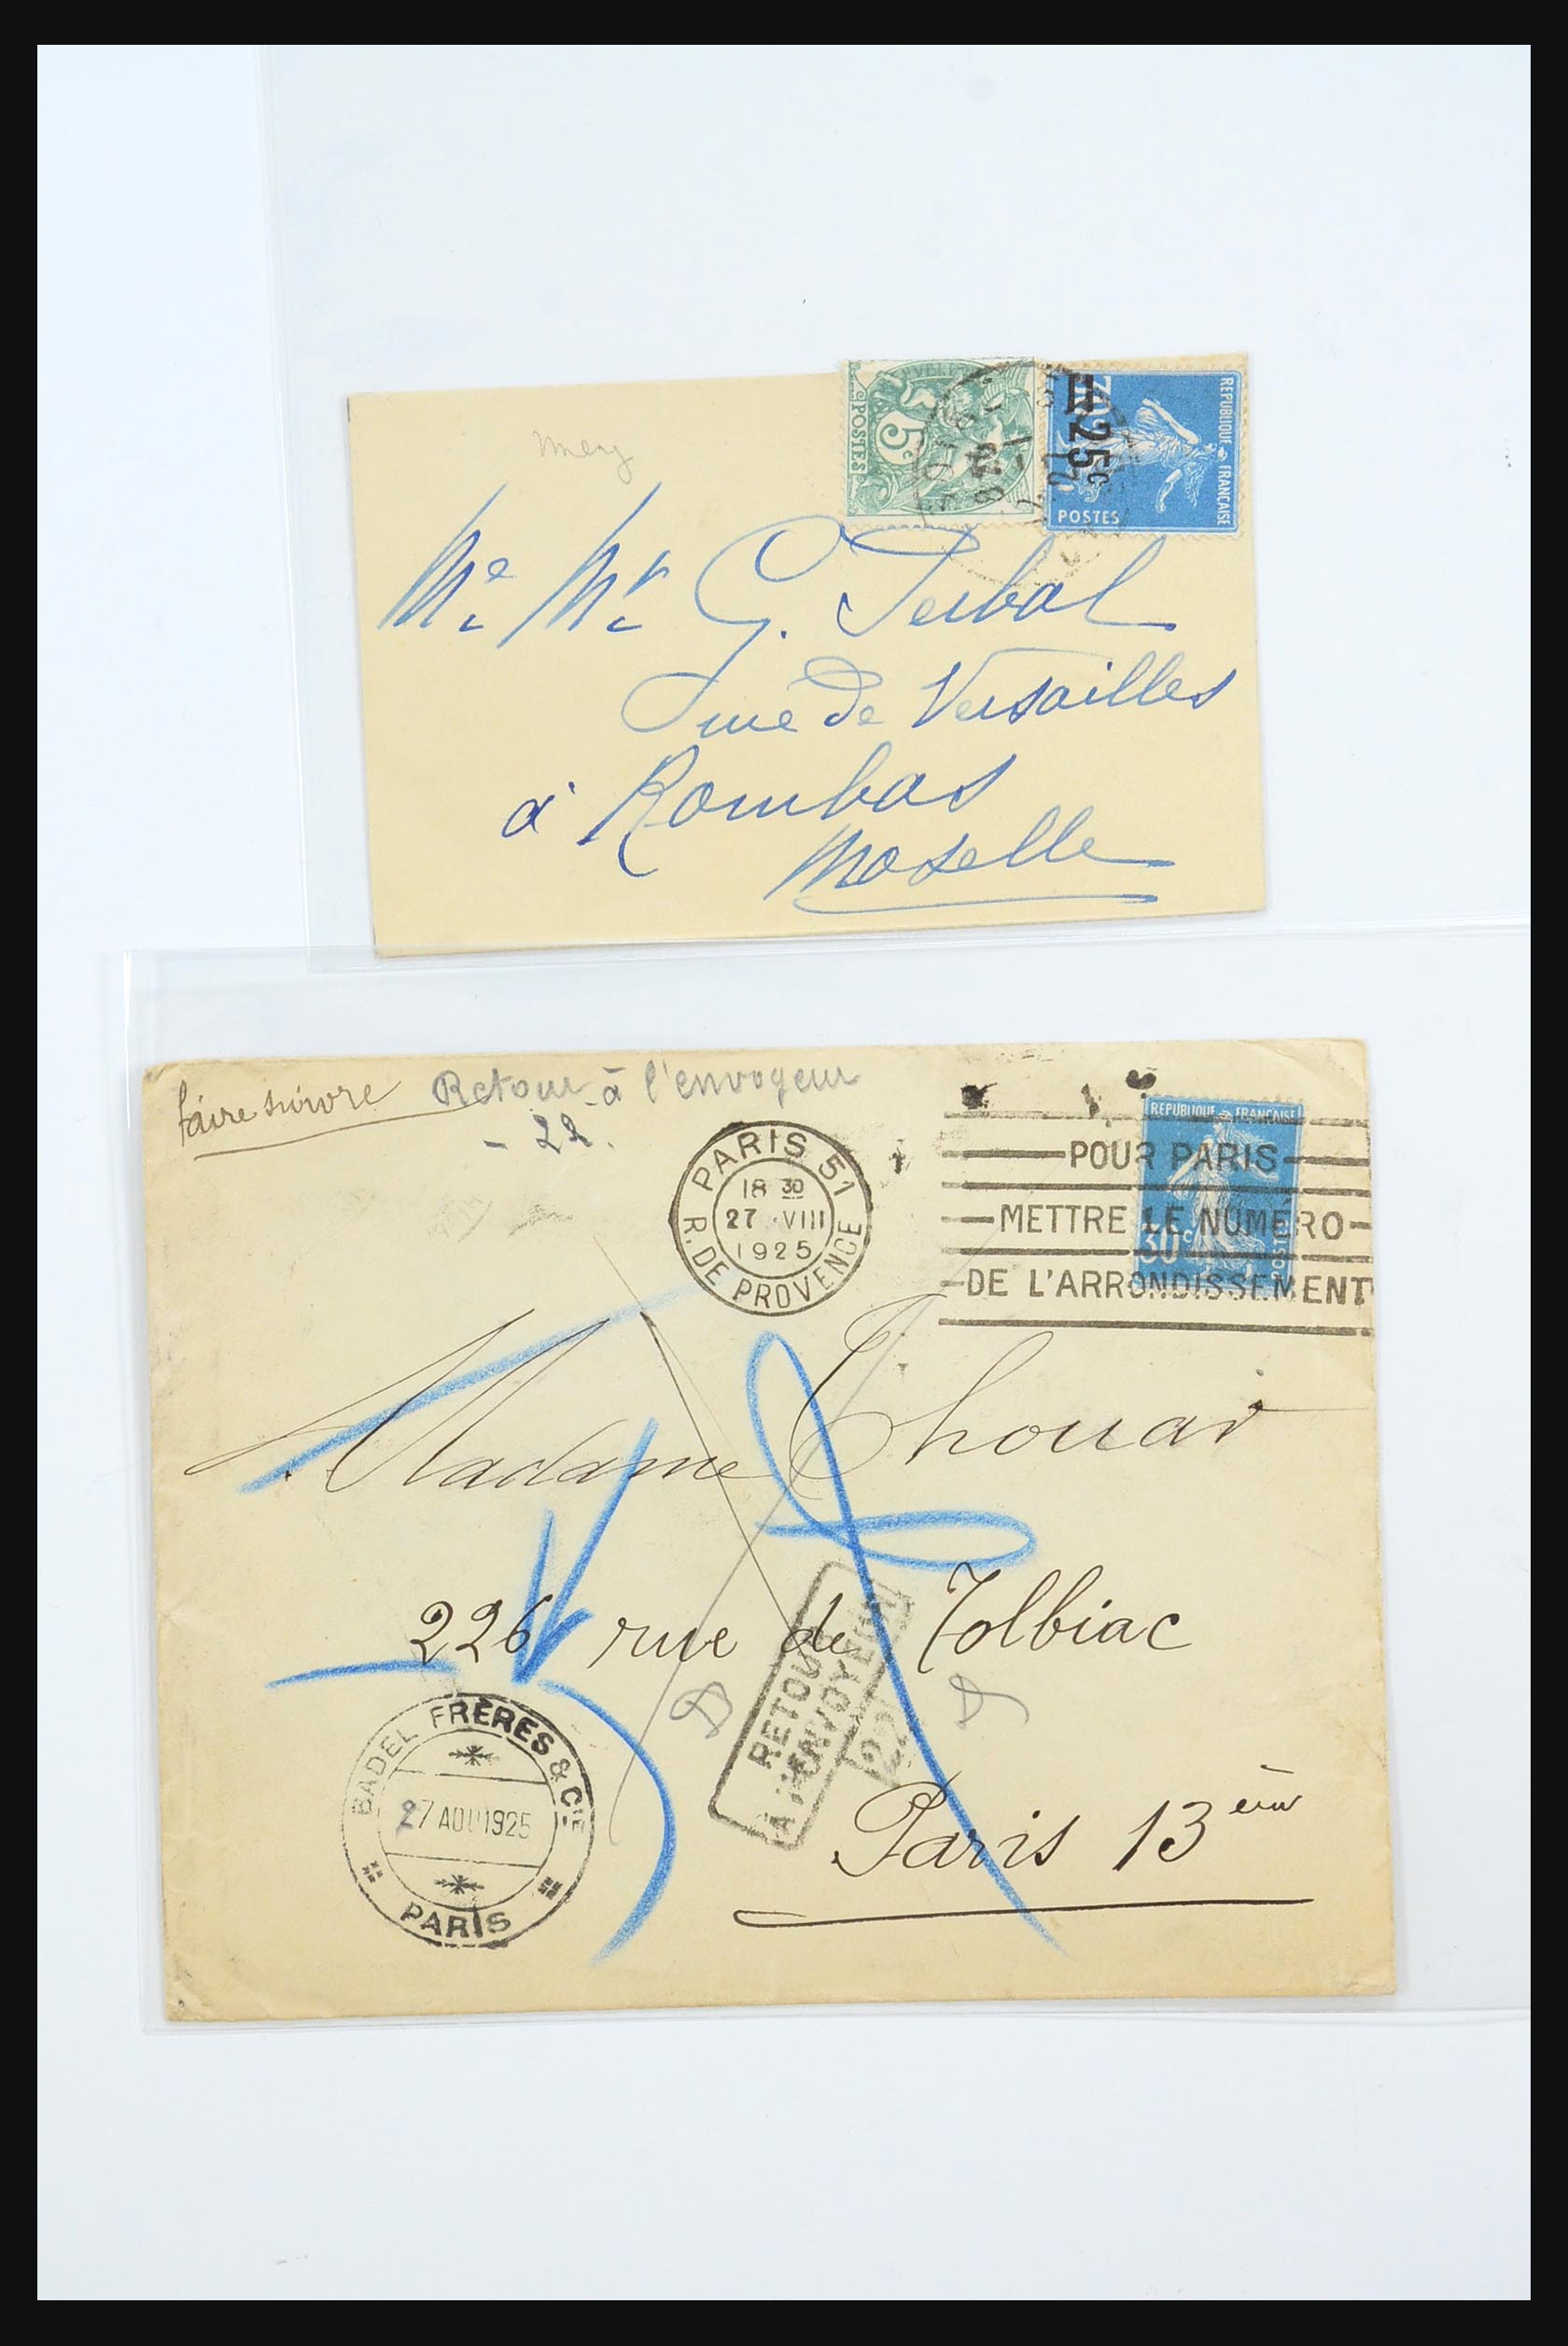 Mery
5c
POSTES
REPUBLIQUE FRANÇAISE
=25c
POSTES
Me Mr G. Terbal
rue de Versailles
à Rombas
Moselle
faire suivre
Retour à l'envoyeur
- 22.
PARIS 51
18 30
27 VIII
1925
R. DE PROVENCE
REPUBLIQUE FRANÇAISE
30c
POSTES
POUR PARIS
METTRE LE NUMÉRO
DE L'ARRONDISSEMENT
Madame Thouar
226 rue de Tolbiac
RETOUR
A L'ENVOYEUR
22
Paris 13ème
BADEL FRÈRES & CIE
27 AOU 1925
PARIS